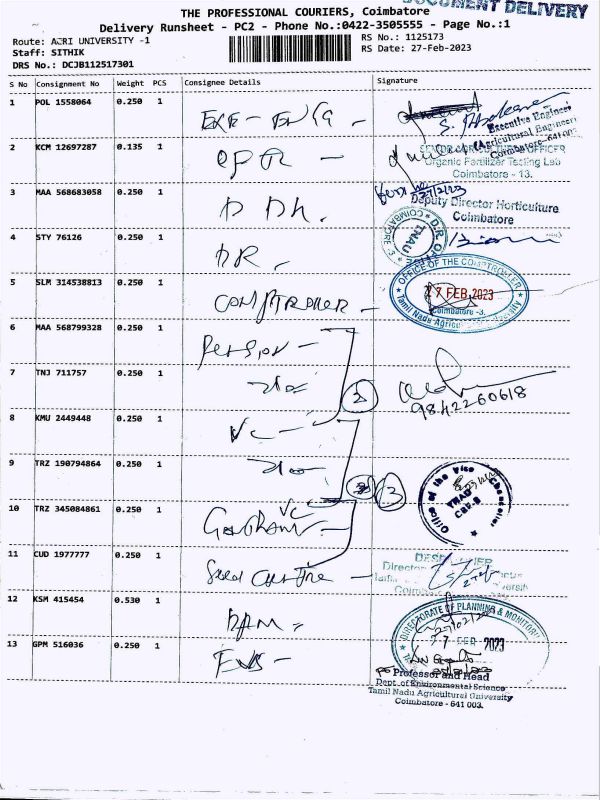 DOCUMENT DELIVERY
THE PROFESSIONAL COURIERS, Coimbatore
Delivery Runsheet - PC2 - Phone No.:0422-3505555 - Page No.:1
Route: AGRI UNIVERSITY -1
RS No.: 1125173
Staff: SITHIK
RS Date: 27-Feb-2023
DRS No.: DCJB112517301
S No Consignment No Weight PCS Consignee Details Signature
1 POL 1558064 0.250 1
Executive Engineer
Agricultural Engineer
Coimbatore-641 003
2 KCM 12697287 0.135 1
OFFICER
Organic Fertilizer Testing Lab
Coimbatore - 13.
3 MAA 568683058 0.250 1
Deputy Director Horticulture
Coimbatore
4 STY 76126 0.250 1 DR
TNAU
COIMBATORE
5 SLM 314538813 0.250 1 COMPTROLLER
OFFICE OF THE COMPTROLLER
27 FEB 2023
Coimbatore -3.
Tamil Nadu Agricultural University
6 MAA 568799328 0.250 1 Pension
7 TNJ 711757 0.250 1
2
9842260618
8 KMU 2449448 0.250 1 VC
9 TRZ 190794864 0.250 1
3
Office of the Vice Chancellor
TNAU
CBE-3
10 TRZ 345084861 0.250 1
VC
11 CUD 1977777 0.250 1 Seed Centre
Director
12 KSM 415454 0.530 1
DIRECTORATE OF PLANNING & MONITORING
27 FEB 2023
13 GPM 516036 0.250 1 ENS
Professor and Head
Dept. of Environmental Science
Tamil Nadu Agricultural University
Coimbatore - 641 003.